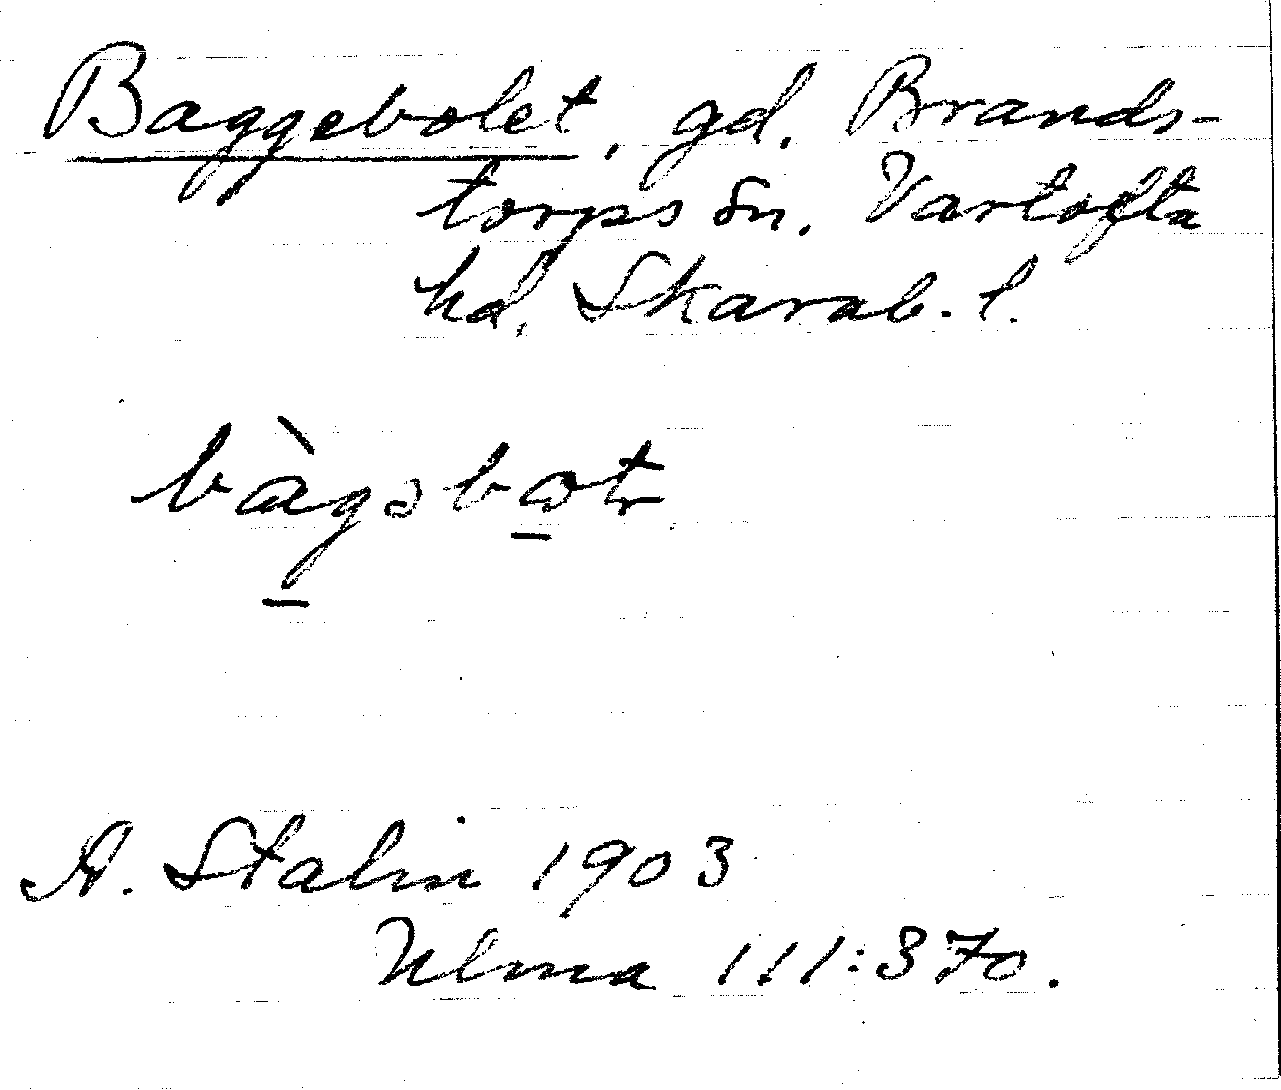 Baggebolet, gd. Brands-
torps sn. Vartofta
hd. Skarab. l.
bàgəbωtr
A. Stalin 1903
Ulma 111:370.